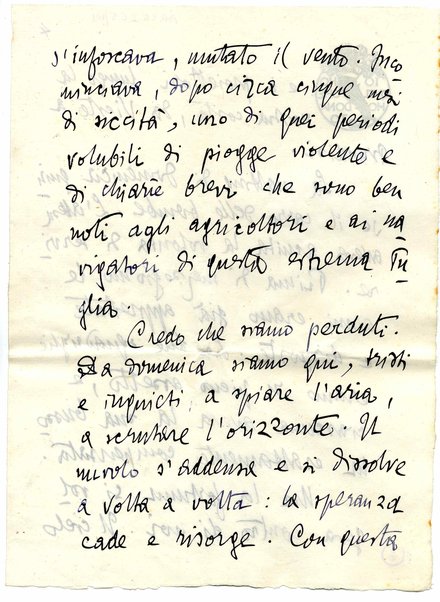 s'inforcava, mutato il vento. Inco
minciava, dopo circa cinque mesi
di siccità, uno di quei periodi
volubili di piogge violente e
di chiarie brevi che sono ben
noti agli agricoltori e ai na
vigatori di questa estrema Pu
glia.
Credo che siamo perduti.
Da domenica siamo qui, tristi
e inquieti, a spiare l'aria,
a scrutare l'orizzonte. Il
nuvolo s'addensa e si dissolve
a volta a volta: la speranza
cade e risorge. Con questa